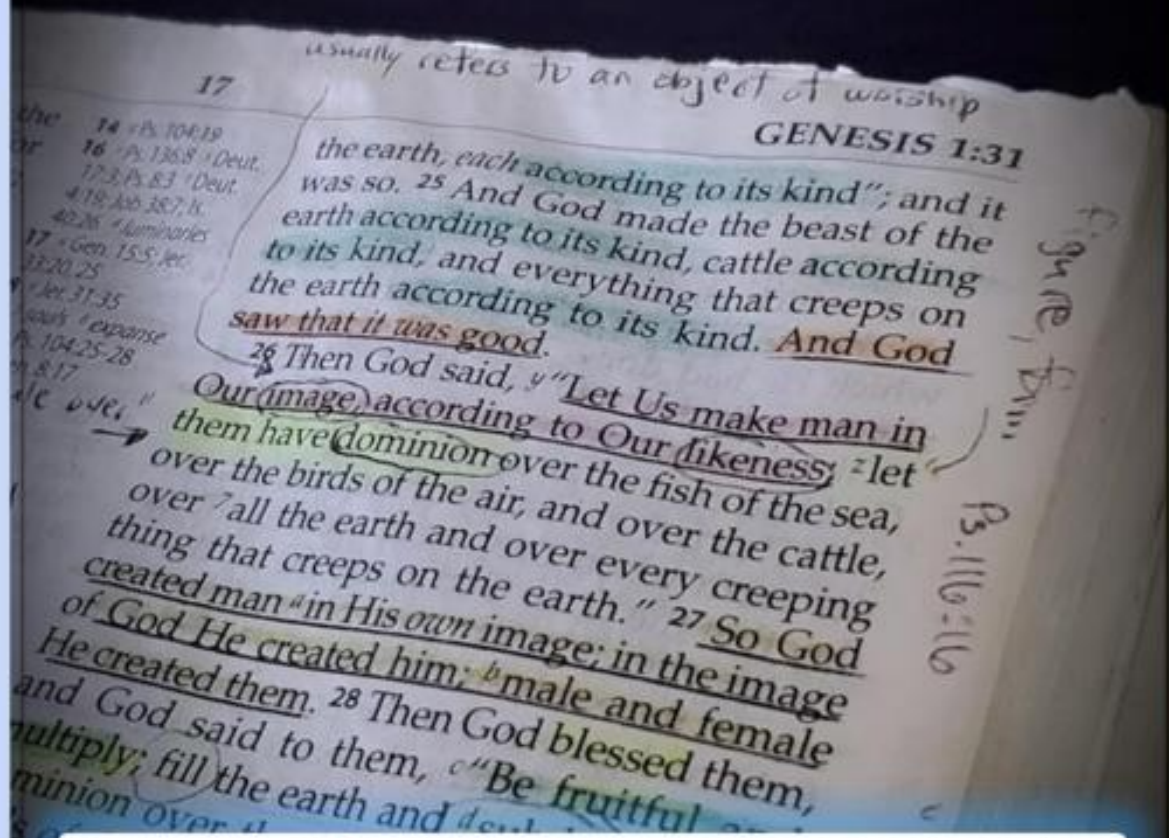 usually refers to an object of worship
17
GENESIS 1:31
the
14 Ps. 104:19
16 Ps. 136:8 Deut.
17:3; Ps. 8:3 Deut.
4:19; Job 38:7; Is.
40:26 luminaries
17 Gen. 15:5; Jer.
33:20, 25
Jer. 31:35
souls expanse
Ps. 104:25-28
8:17
over"
the earth, each according to its kind"; and it
was so. 25 And God made the beast of the
earth according to its kind, cattle according
to its kind, and everything that creeps on
the earth according to its kind. And God
saw that it was good.
26 Then God said, y "Let Us make man in
Our image, according to Our likeness; z let
them have dominion over the fish of the sea,
over the birds of the air, and over the cattle,
over 7 all the earth and over every creeping
thing that creeps on the earth." 27 So God
created man a in His own image; in the image
of God He created him; b male and female
He created them. 28 Then God blessed them,
and God said to them, c "Be fruitful
multiply; fill the earth and d
minion over
figure, form
Ps. 116:16